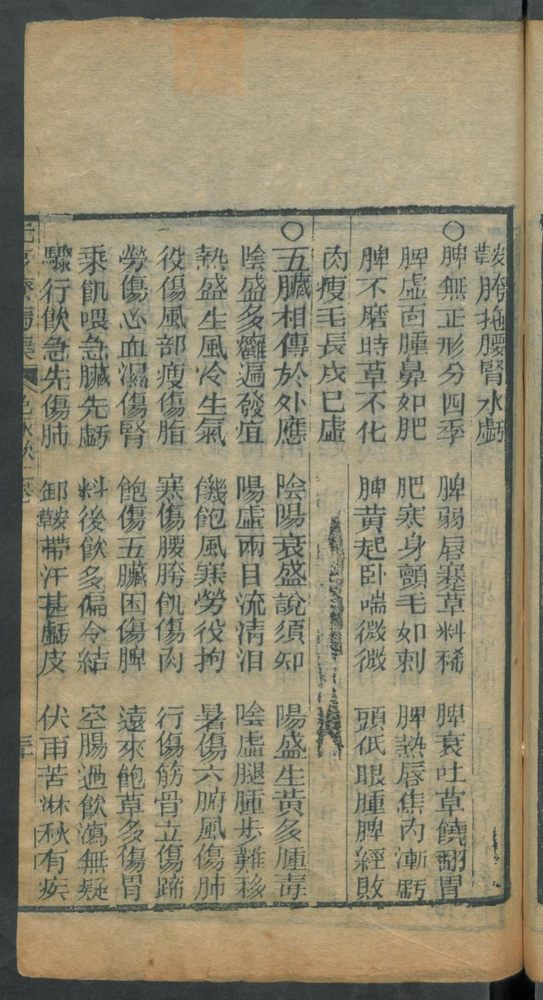 膁胯拖腰腎水虧
〇脾無正形分四季 脾弱唇蹇草料稀 脾衰吐草饒翻胃
脾虛面腫鼻如肥 肥寒身顫毛如刺 脾熱唇焦內漸虧
脾不磨時草不化 脾黃起卧喘微微 頭低眼腫脾經敗
肉瘦毛長戊巳虛
〇五臟相傳於外應 陰陽衰盛說須知 陽盛生黃多腫毒
陰盛多癱遍發疽 陽虛兩目流清泪 陰虛腿腫步難移
熱盛生風冷生氣 饑飽風寒勞役拘 暑傷六腑風傷肺
役傷風部瘦傷脂 寒傷腰胯飢傷肉 行傷筋骨立傷蹄
勞傷心血濕傷腎 飽傷五臟困傷脾 遠來飽草多傷胃
乘飢喂急臟先虧 料後飲多偏令結 空腸過飲瀉無疑
驟行飲急先傷肺 卸鞍帶汗甚虧皮 伏雨苦淋秋有疾
元亨療馬集